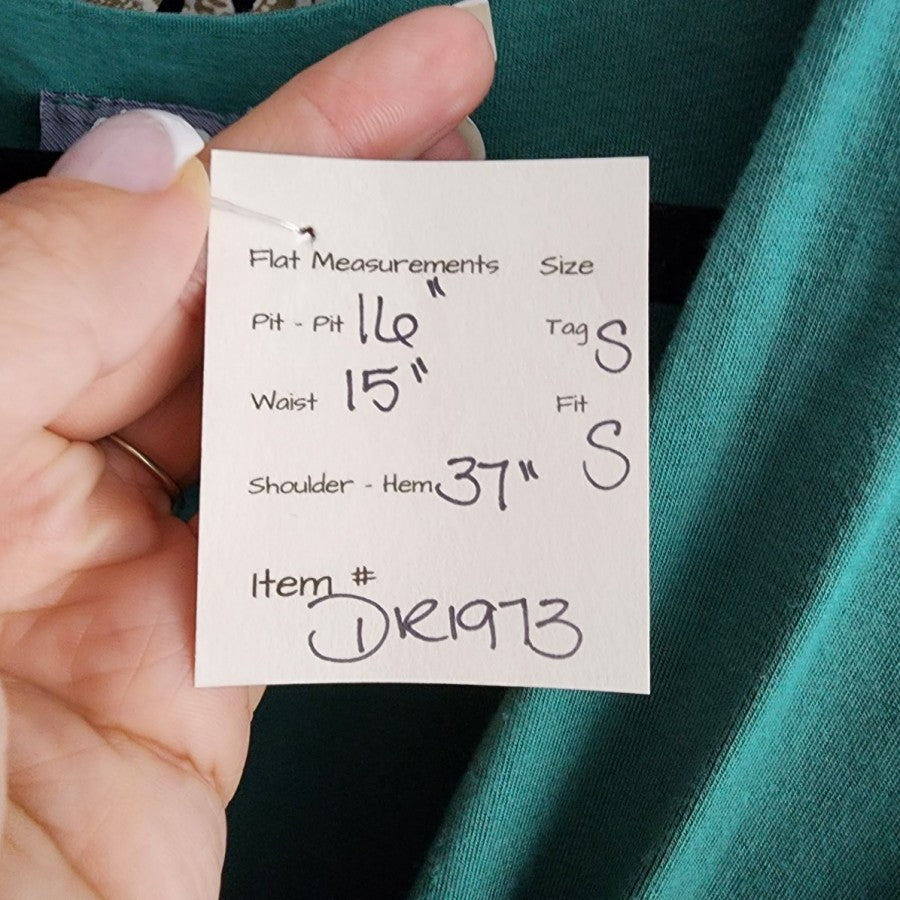 Flat Measurements Size
Pit - Pit 16" Tag S
Waist 15" Fit S
Shoulder - Hem 37"
Item #
DR1973